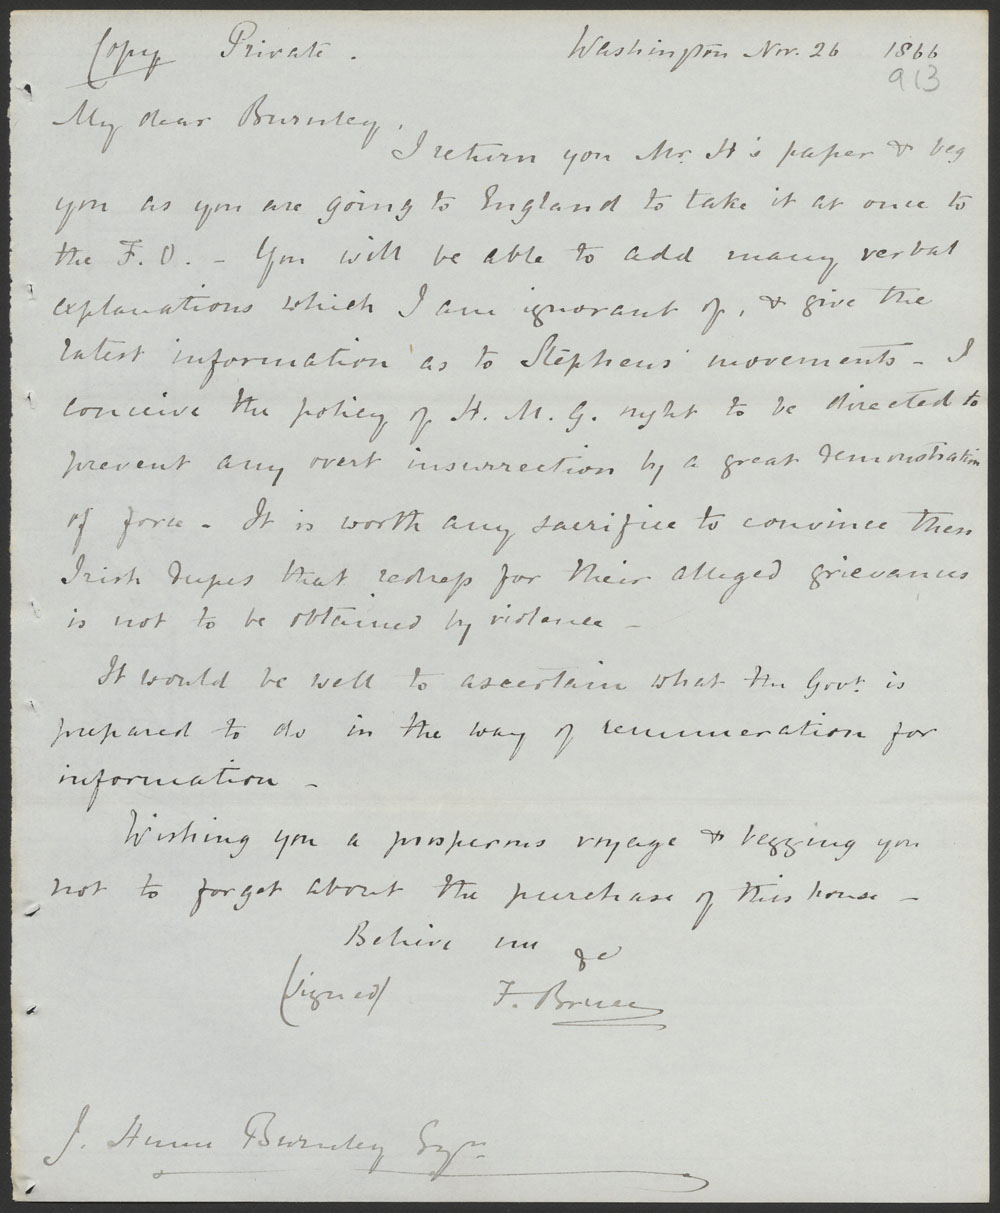 Copy Private. Washington Nov. 26 1866
913
My dear Burnley,
I return you Mr. H's paper & beg
you as you are going to England to take it at once to
the F.O. - You will be able to add many verbal
explanations which I am ignorant of, & give the
latest information as to Stephens' movements - I
conceive the policy of H. M. G. ought to be directed to
prevent any overt insurrection by a great demonstration
of force - It is worth any sacrifice to convince these
Irish dupes that redress for their alleged grievances
is not to be obtained by violence -
It would be well to ascertain what the Govt. is
prepared to do in the way of remuneration for
information -
Wishing you a prosperous voyage & begging you
not to forget about the purchase of this house -
Believe me &c
(signed) F. Bruce
J. Hume Burnley Esqre